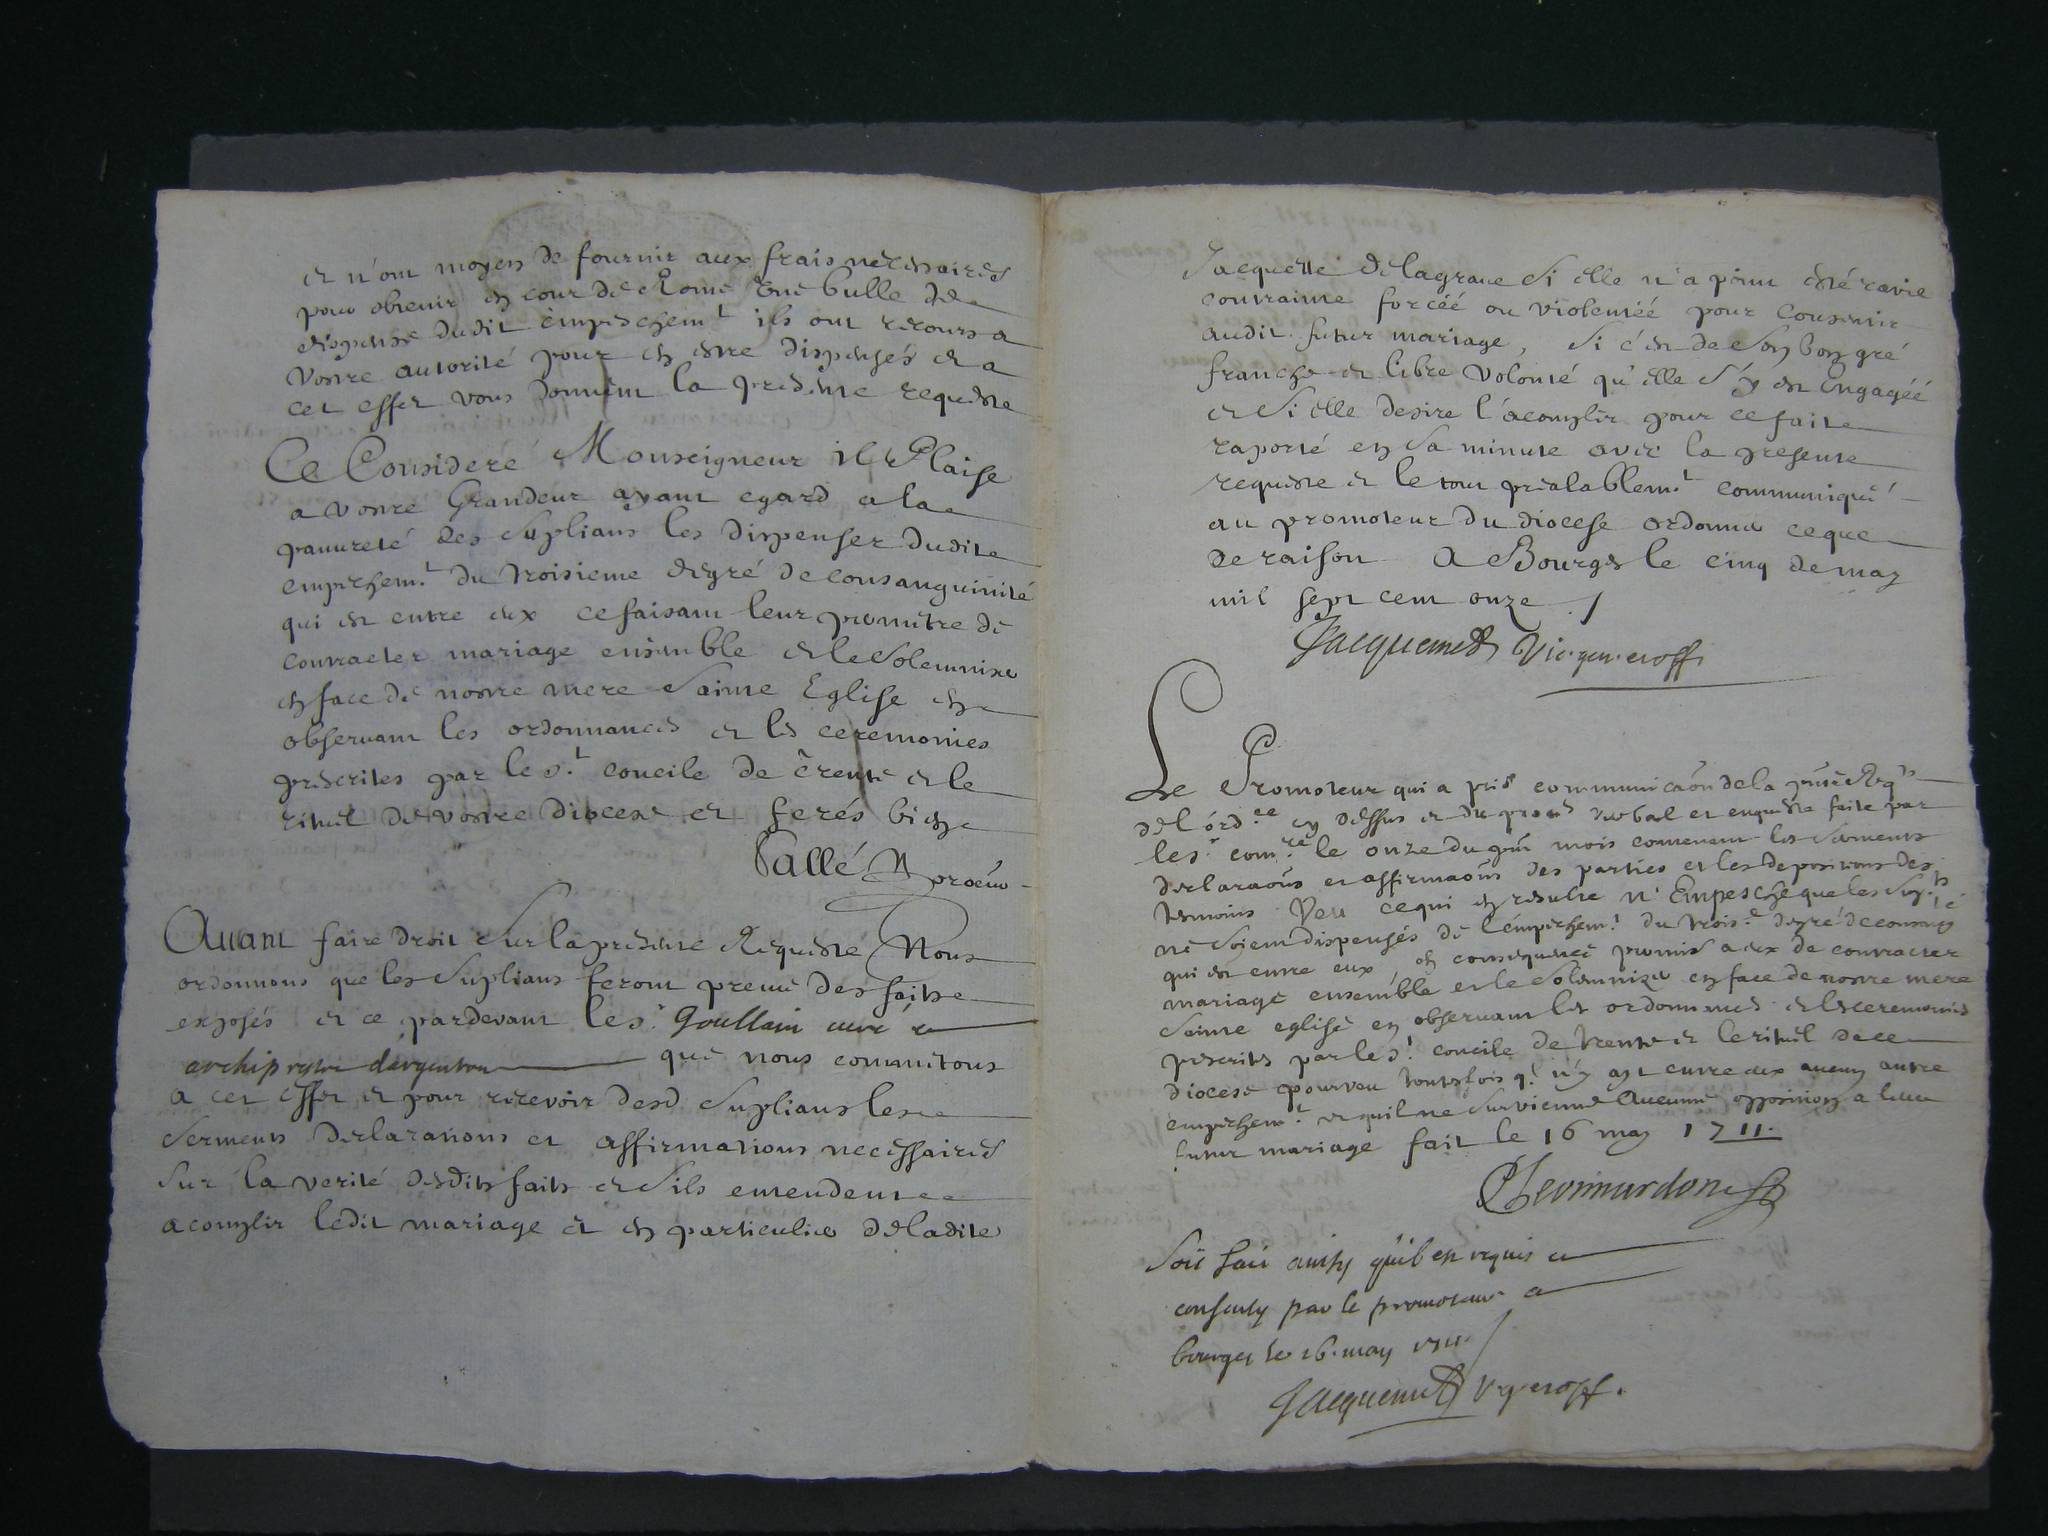 et n'ont moyen de fournir aux frais necessaires
pour obtenir en cour de Rome une bulle de
dispense dudit empeschem.t ils ont recours a
vostre autorité pour en estre dispensés et a
cet effet vous donnent la presente requeste
Ce Consideré Monseigneur il Plaise
a vostre Grandeur ayant egard a la
pauureté des suplians les dispenser dudit
empeschem.t du troisieme degré de consanguinité
qui est entre eux ce faisant leur promettre de
contracter mariage ensemble et le solemniser
en face de nostre mere sainte Eglise en
obseruant les ordonnances et les ceremonies
prescrites par le s.t concile de trente et le
rituel de vostre diocese et ferés bien
Vallé procur
Auant faire droit sur la presente Requeste Nous
ordonnons que les suplians feront preuue des faits
exposés et ce pardevant le s.r Goullain curé et
archiprestre dargenton que nous commettons
a cet effet et pour recevoir desd suplians les
serments declarations et affirmations necessaires
sur la verité desdits faits et s'ils entendent
acomplir ledit mariage et en particulier deladite
Jacquette delagraue si elle n'a point esté ravie
contrainte forcéé ou violentéé pour consentir
audit futur mariage, si c'est de son bon gré
franche et libre volonté qu'elle s'y est Engagéé
et si elle desire l'acomplir pour ce fait
raporté en sa minute avec la presente
requeste et le tout prealablem.t communiqué
au promoteur du diocese ordonner ce que
de raison a Bourges le cinq de may
mil sept cent onze
Jacquemet vic. gen. et off.
Le Promoteur qui a pris communicaon de la pnte Reqte
de l'ord.ce cy dessus et du proces verbal et enqueste faite par
le s.r com.re le onze du pnt mois contenant les serments
declaraons et affirmaons des parties et les depositions des
tesmoins Veu ce qui en resulte n'Empesche que les sup.ts
ne soient dispensés de l'empeschem.t du trois.e degré de consang.té
qui est entre eux en consequence promis a eux de contracter
mariage ensemble et le solemniser en face de nostre mere
sainte eglise en obseruant les ordonnances et les ceremonies
prescrites par le s.t concile de trente et le rituel de ce
diocese pourveu toutefois q.l n'y ayt entre eux aucun autre
empeschem.t et quil ne survienne Aucune opposition a leur
futur mariage fait le 16 may 1711.
Soit fait ainsy qu'il est requis et
consenty par le promoteur a
bourges le 16. may 1711.
Jacquemet v. g. et off.